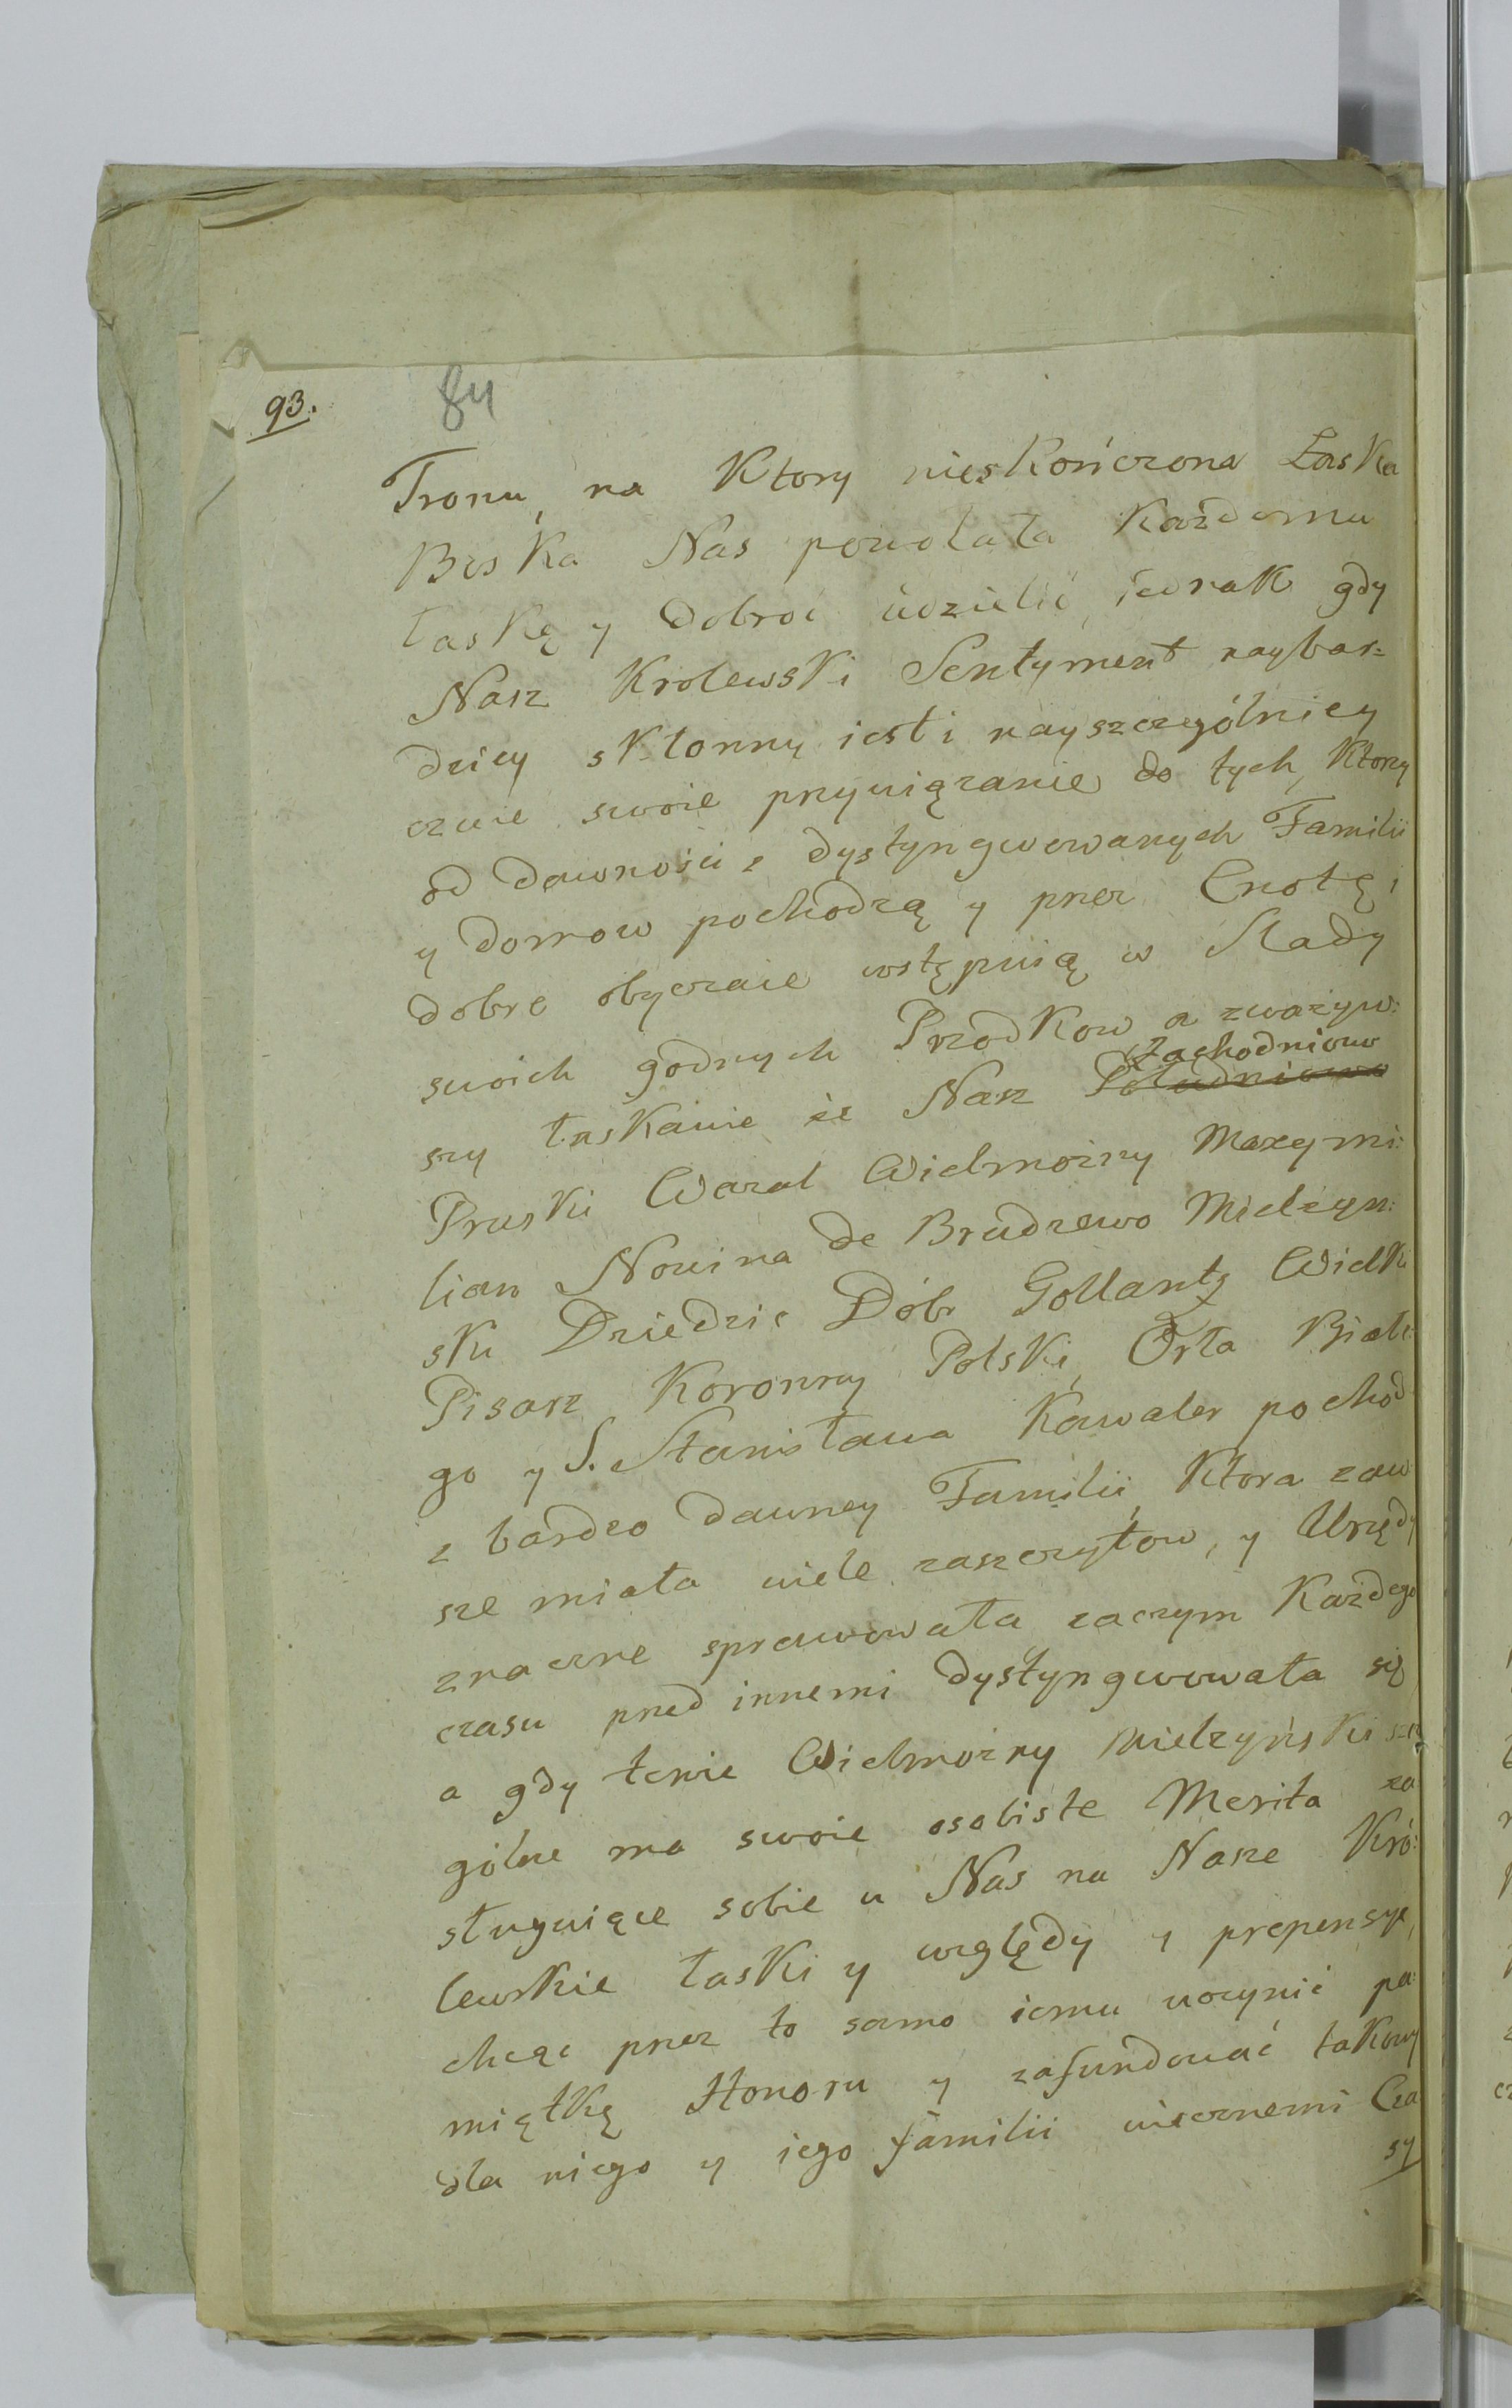 93.
84
Tronu, na Ktory nieskończona Łaska
Boska Nas powołała Każdemu
łaskę y dobroć udzielić, iednak gdy
Nasz Krolewski Sentyment naybar=
dziey skłonny iest i nayszczegόlniey
czuie swoie przywiązanie do tych, Ktorzy
od dawności z dystyngwowanych Familii
y domow pochodzą y przez Cnotę i
dobre obyczaie wstępuią w Slady
swoich godnych Przodkow a zważyw:
szy łaskawie że Nasz Południowo Zachodniowo
Pruski Wazal Wielmożny Maxymi:
lian Nowina de Brudzewo Mielzyn:
ski Dziedzic Dóbr Gollantz Wielki
Pisarz Koronny Polski, Orła Białe:
go y S. Stanisława Kawaler pochod
z bardzo dawney Familii, Ktora zaw
sze miała wiele zaszczytow, y Urzędy
znaczne sprawowała zaczym Każdego
czasu przed innemi dystyngwowała się
a gdy tenże Wielmożny Mielzyński szcze
gólne ma swoie osobiste Merita za
sługuiące sobie u Nas na Nasze Kró:
lewskie łaski y względy y propensye,
chcąc przez to samo iemu uczynić pa:
miątkę Honoru y zafundować takowy
dla niego y iego familii wiecznemi Cza
sy